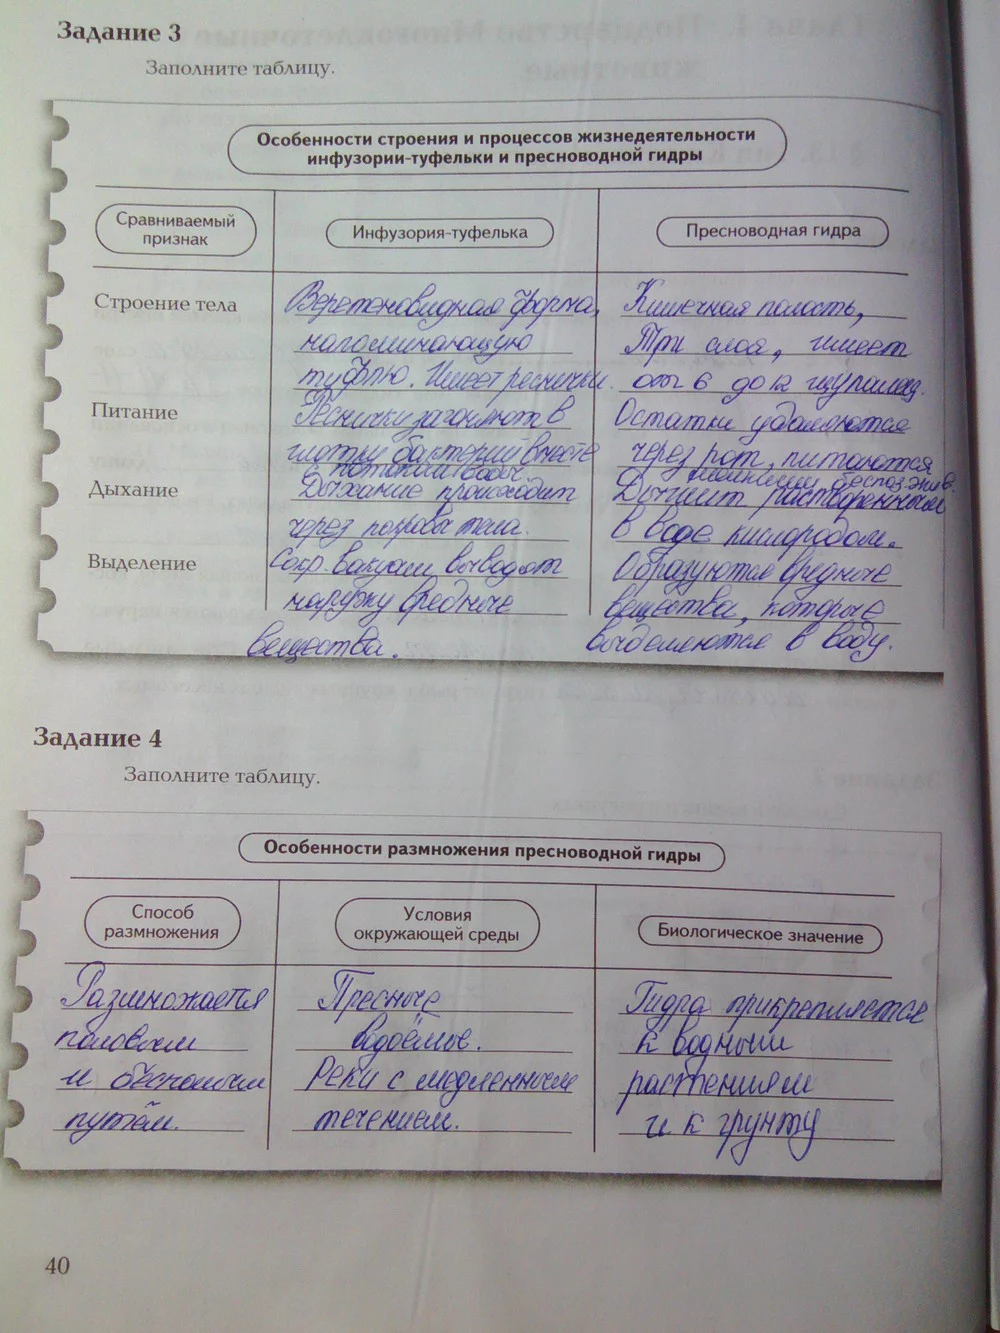 Задание 3
Заполните таблицу.
Особенности строения и процессов жизнедеятельности
инфузории-туфельки и пресноводной гидры
Сравниваемый
признак
Инфузория-туфелька
Пресноводная гидра
Строение тела
Веретеновидная форма,
напоминающую
туфлю. Имеет реснички.
Кишечная полость,
Три слоя, имеет
от 6 до 12 щупалец.
Питание
Реснички загоняют в
глотку бактерий вместе
с потоком воды.
Остатки удаляются
через рот, питаются
беспозвон.
Дыхание
Дыхание происходит
через покровы тела.
Дышит растворенным
в воде кислородом.
Выделение
Сокр. вакуоли выводят
наружу вредные
вещества.
Образуются вредные
вещества, которые
выделяются в воду.
Задание 4
Заполните таблицу.
Особенности размножения пресноводной гидры
Способ
размножения
Условия
окружающей среды
Биологическое значение
Размножается
половым
и бесполым
путём.
Пресные
водоёмы.
Реки с медленным
течением.
Гидра прикрепляется
к водным
растениям
и к грунту
40